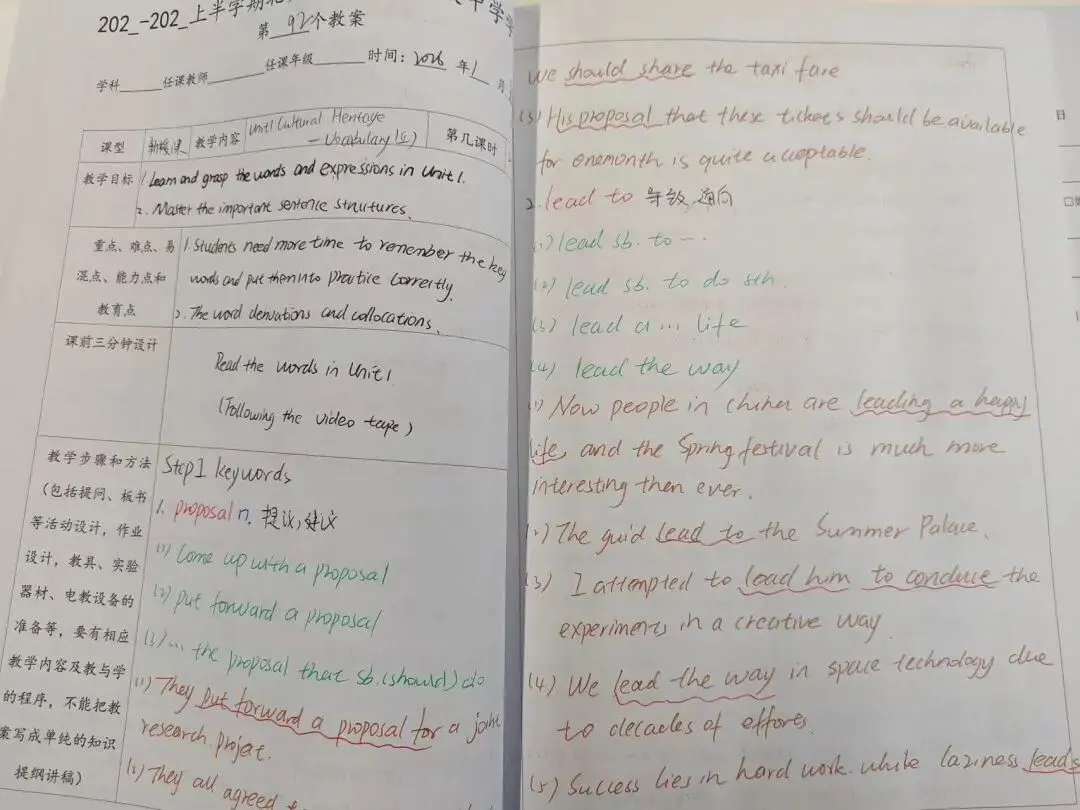 202_-202_上半学期
中学
第 92 个教案
学科 任课教师 任课年级 时间: 2026 年 1 月
课型 新授课 教学内容 Unit1 Cultural Heritage
— Vocabulary
第几课时
教学目标 1. Learn and grasp the words and expressions in Unit 1.
2. Master the important sentence strutures.
重点、难点、易
混点、能力点和
教育点
1. Students need more time to remember the key
words and put them into practice correctly.
2. The word derivations and collocations.
课前三分钟设计
Read the words in Unit 1
(Following the video tape)
教学步骤和方法
(包括提问、板书
等活动设计,作业
设计,教具、实验
器材、电教设备的
准备等,要有相应
教学内容及教与学
的程序,不能把教
案写成单纯的知识
提纲讲稿)
Step1 keywords
1. proposal n. 提议,建议
(1) Come up with a proposal
(2) put forward a proposal
(3) ... the proposal that sb. (should) do
(1) They put forward a proposal for a joint
research projat.
(2) They all agreed
we should share the taxi fare
(3) His proposal that these tickets should be available
for onemonth is quite acceptable.
2. lead to 导致,通向
(1) lead sb. to ...
(2) lead sb. to do sth.
(3) lead a ... life
(4) lead the way
(1) Now people in china are leading a happy
life, and the Spring festival is much more
interesting then ever.
(2) The guid lead to the Summer Palace.
(3) I attempted to lead him to conduce the
experiments in a creative way
(4) We lead the way in space technology due
to decades of efforts.
(5) Success lies in hard work. while laziness leads
日